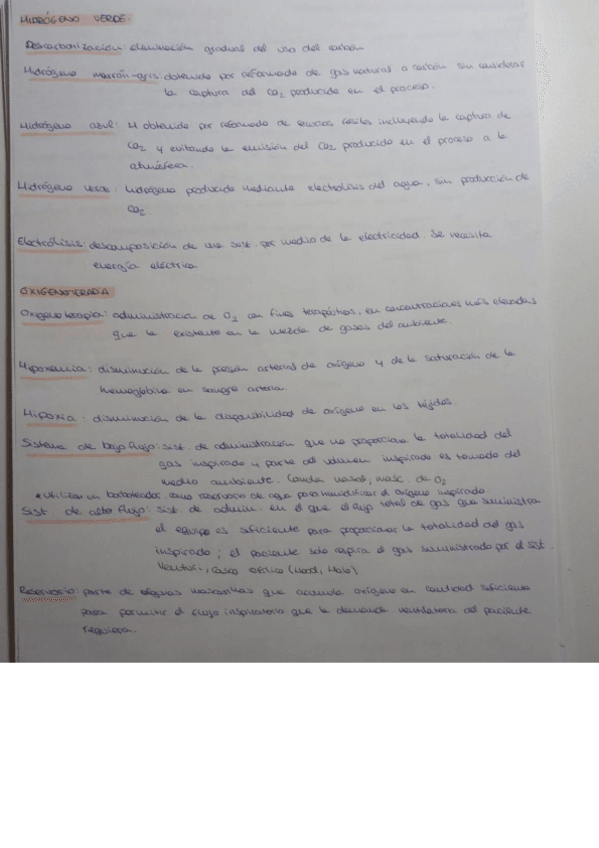 HIDRÓGENO VERDE:
Descarbonización: eliminación gradual del uso del carbón
Hidrógeno marrón-gris: obtenido por reformado de gas natural o carbón sin considerar
la captura del CO2 producido en el proceso.
Hidrógeno azul: H obtenido por reformado de fósiles incluyendo la captura de
CO2 y evitando la emisión del CO2 producido en el proceso a la
atmósfera.
Hidrógeno verde: hidrógeno producido mediante electrólisis del agua, sin producción de
CO2.
Electrólisis: descomposición de una sust. por medio de la electricidad. Se necesita
energía eléctrica
OXIGENOTERAPIA
Oxigenoterapia: administración de O2 con fines terapéuticos, en concentraciones más elevadas
que la existente en la mezcla de gases del ambiente.
Hipoxemia: disminución de la presión arterial de oxígeno y de la saturación de la
hemoglobina en sangre arterial.
Hipoxia: disminución de la disponibilidad de oxígeno en los tejidos.
Sistema de bajo flujo: sist. de administración que no proporciona la totalidad del
gas inspirado y parte del volumen inspirado es tomado del
medio ambiente. Cánula nasal, masc. de O2
*utilizar un borboteador como reservorio de agua para humidificar el oxígeno inspirado
Sist. de alto flujo: sist. de admin. en el que el flujo total de gas que suministra
el equipo es suficiente para proporcionar la totalidad del gas
inspirado; el paciente solo respira el gas suministrado por el sist.
Venturi, casco cefálico (Hood, Halo)
Reservorio: parte de algunas mascarillas que acumula oxígeno en cantidad suficiente
para permitir el flujo inspiratorio que la demanda ventilatoria del paciente
requiera.